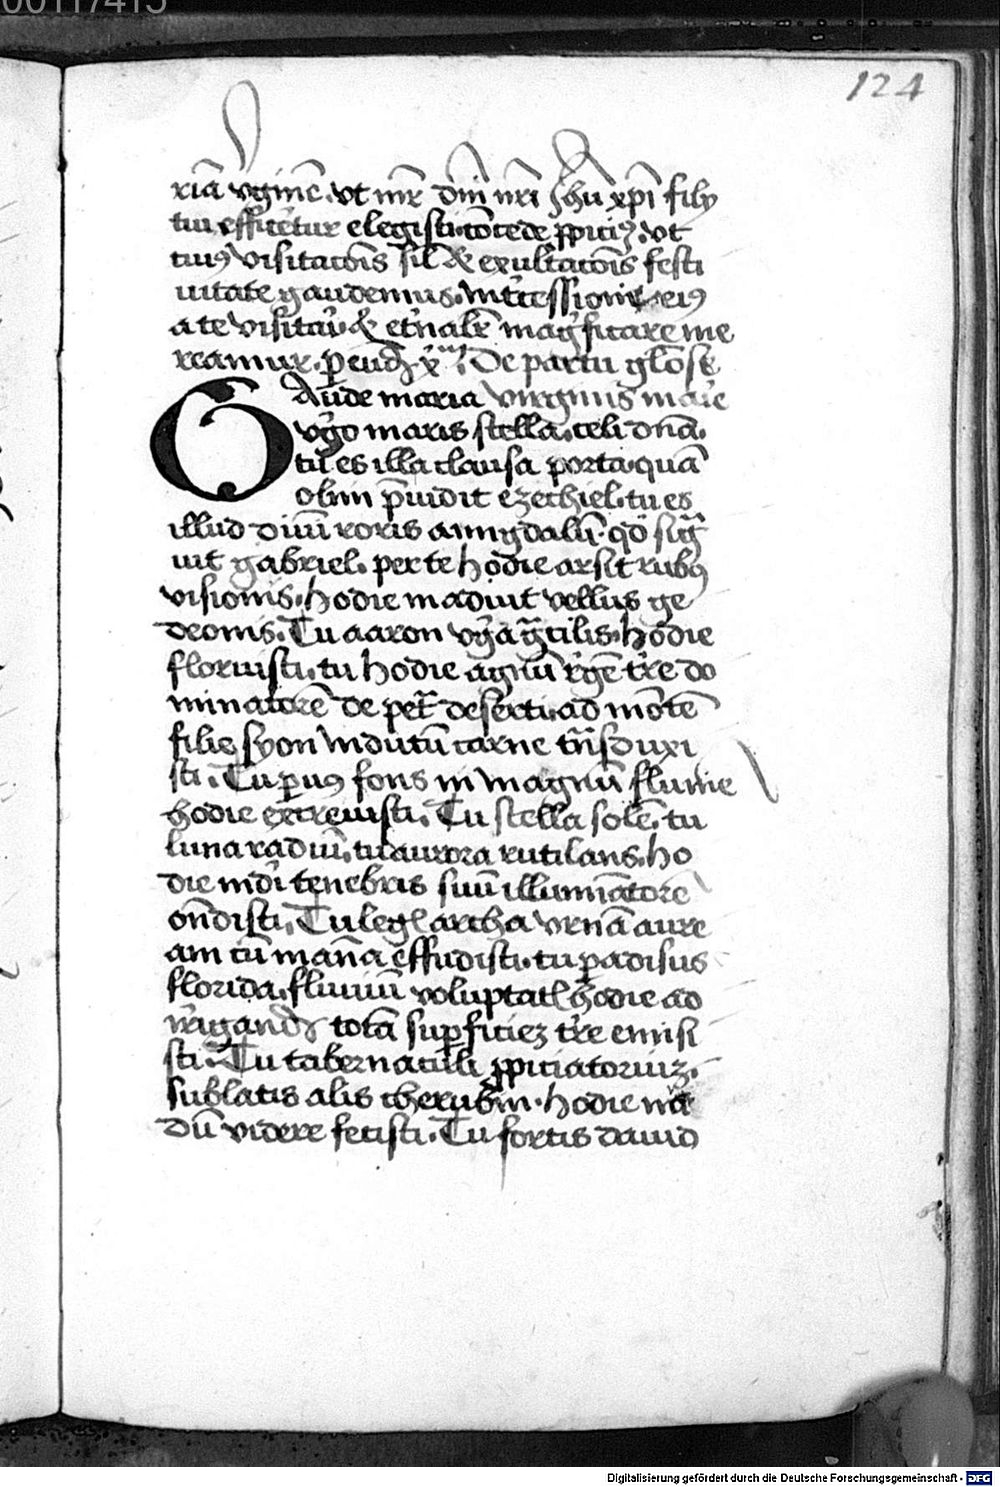 00117415
124
riā vginē. vt mr̄ dm̄ nr̄i Jhū xp̄i filij
tui efficetur elegisti. cōcede ppiciꝫ. vt
tuiꝯ visitacōis sil̄ & exultacōis festi
uitate gaudemus. Intcessioniꝫ eiꝯ
a te visitari & etnalr̄ magficare me
reamur. p eūdꝫ xm̄. De partu glōse
Gaude maria virginis mat̄e
vgo maris stella. celi dnā.
tu es illa clausa porta. quā
olim p̄uidit ezechiel. tu es
illud diuini roris amigdalū. qd̄ sig
uit gabriel. per te hodie arsit rubꝯ
visionis. hodie maduit vellus ge
deonis. Tu aaron vga gcilis. hodie
floruisti. tu hodie agnū rgē tr̄e do
minatorē de pet̄ deserti. ad mōtē
filie syon Indutū carne tn̄sduxi
sti. Tu puꝯ fons in magnū flumē
hodie excreuisti. Tu stella solē. tu
luna radiū. tu aurora rutilans. ho
die mdi tenebris suū illuminatorē
on̄disti. Tu legꝭ archa vrnā aure
am cū man̄a effudisti. tu padisus
florida. fluuiū voluptatꝭ hodie ad
irrigandā totā supficieꝫ tr̄e emisi
sti. Tu tabernaculi ppiciatoriuꝫ.
sublatis alis cherubin. hodie nū
dū videre fecisti. Tu fortis dauid
Digitalisierung gefördert durch die Deutsche Forschungsgemeinschaft - DFG